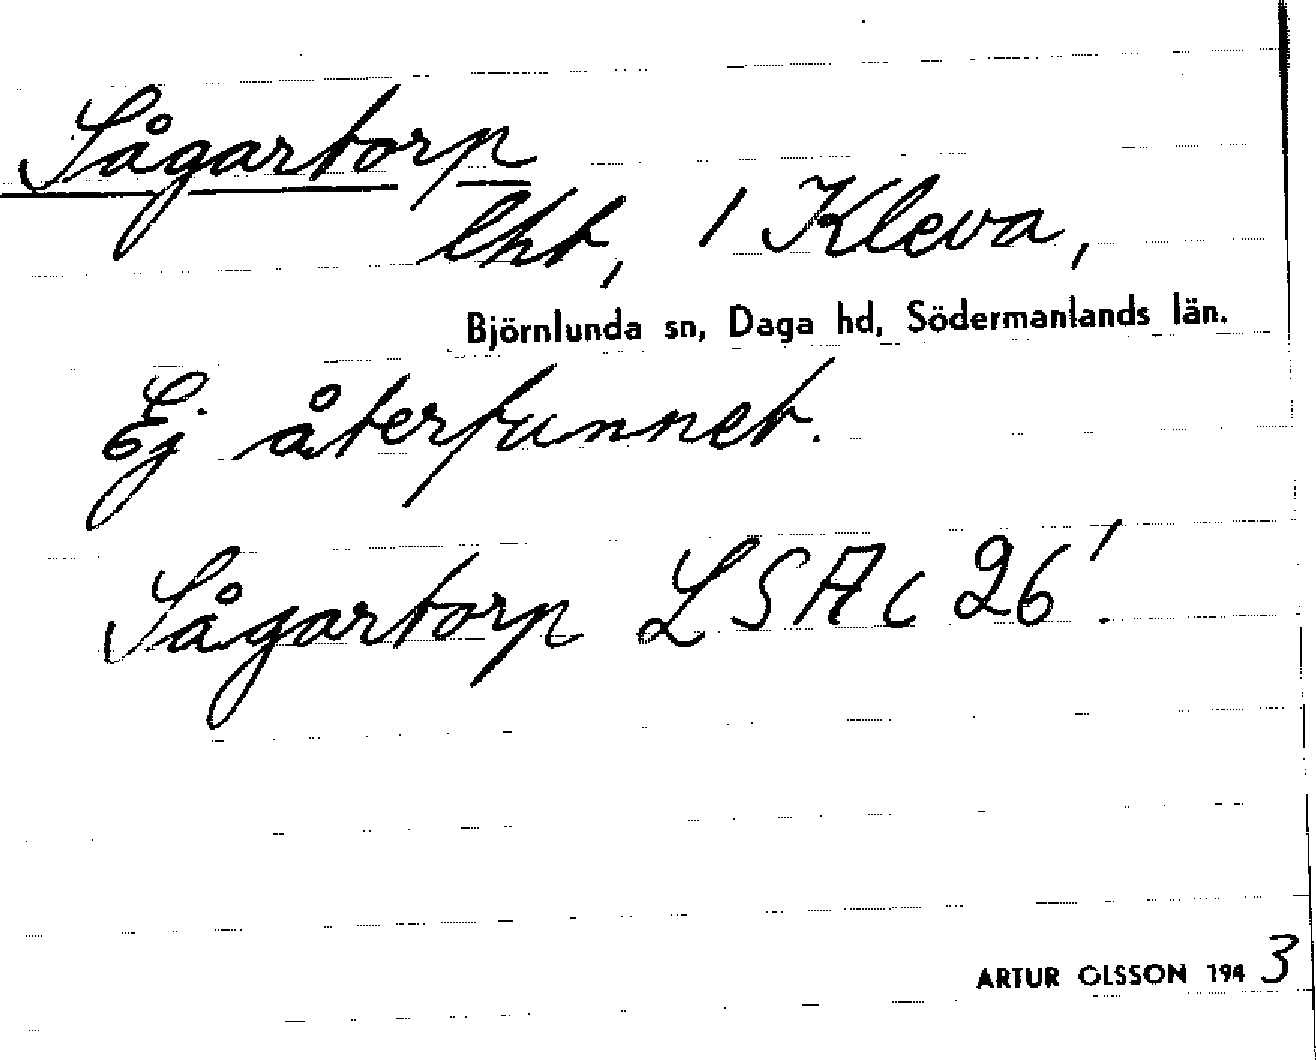 Sågartorp
lht, / Kleva,
Björnlunda sn, Daga hd, Södermanlands län.
Ej återfunnet.
Sågartorp LSA c 26'.
ARTUR OLSSON 1943